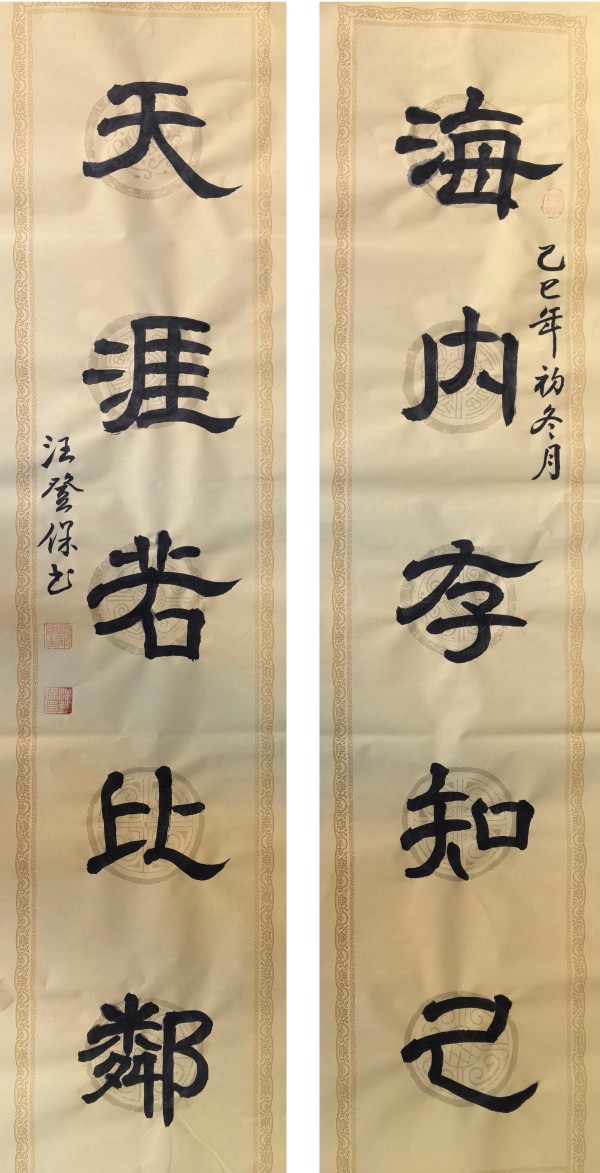 海内存知己
乙巳年初冬月
天涯若比鄰
汪登保书